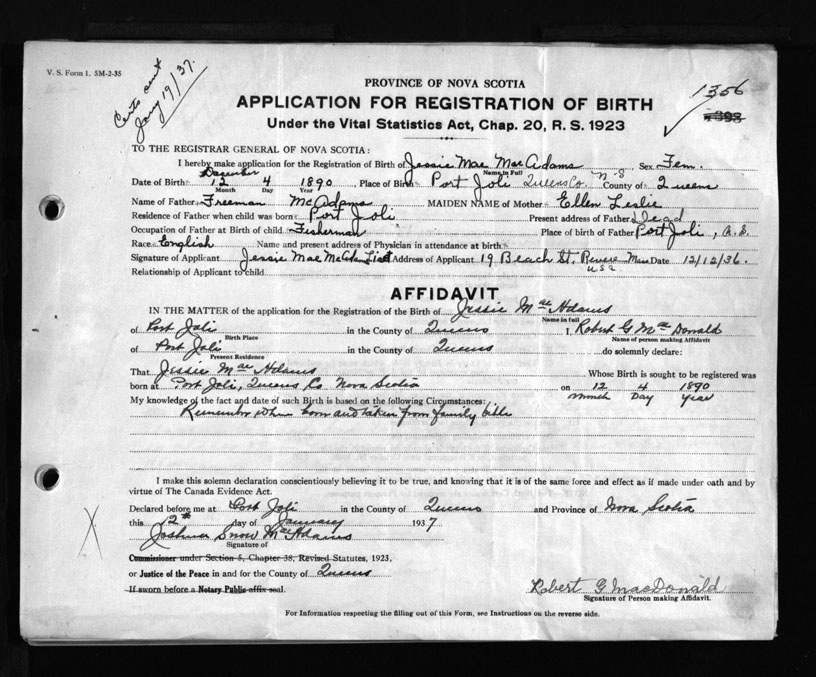 V. S. Form 1. 5M-2-35
Certs sent
Jany 19/37.
1356
PROVINCE OF NOVA SCOTIA
APPLICATION FOR REGISTRATION OF BIRTH
Under the Vital Statistics Act, Chap. 20, R. S. 1923
TO THE REGISTRAR GENERAL OF NOVA SCOTIA:
I hereby make application for the Registration of Birth of Jessie Mae MacAdams Sex Fem.
Name in Full
December N-S
Date of Birth 12 4 1890 Place of Birth Port Joli Queens Co. County of Queens
Month Day Year
Name of Father Freeman McAdams MAIDEN NAME of Mother Ellen Leslie
Residence of Father when child was born Port Joli Present address of Father Dead
Occupation of Father at Birth of child Fisherman Place of birth of Father Port Joli,
Race English Name and present address of Physician in attendance at birth
Signature of Applicant Jessie Mae Address of Applicant 19 Beach St. Revere Mass Date 12/12/36.
Relationship of Applicant to child
AFFIDAVIT
IN THE MATTER of the application for the Registration of the Birth of Jessie Mac Adams
Name in full
of Port Joli in the County of Queens I, Robert G MacDonald
Birth Place Name of person making Affidavit
of Port Joli in the County of Queens do solemnly declare:
Present Residence
That Jessie Mac Adams Whose Birth is sought to be registered was
born at Port Joli, Queens Co Nova Scotia on 12 4 1890
Month Day Year
My knowledge of the fact and date of such Birth is based on the following Circumstances:
Remember when born and taken from family bible
I make this solemn declaration conscientiously believing it to be true, and knowing that it is of the same force and effect as if made under oath and by
virtue of The Canada Evidence Act.
Declared before me at Port Joli in the County of Queens and Province of Nova Scotia
this 2nd day of January 1937
Joshua Snow MacAdams
Signature of
Commissioner under Section 5, Chapter 38, Revised Statutes, 1923,
or Justice of the Peace in and for the County of Queens
If sworn before a Notary Public affix seal.
Robert G MacDonald
Signature of Person making Affidavit.
For Information respecting the filling out of this Form, see Instructions on the reverse side.